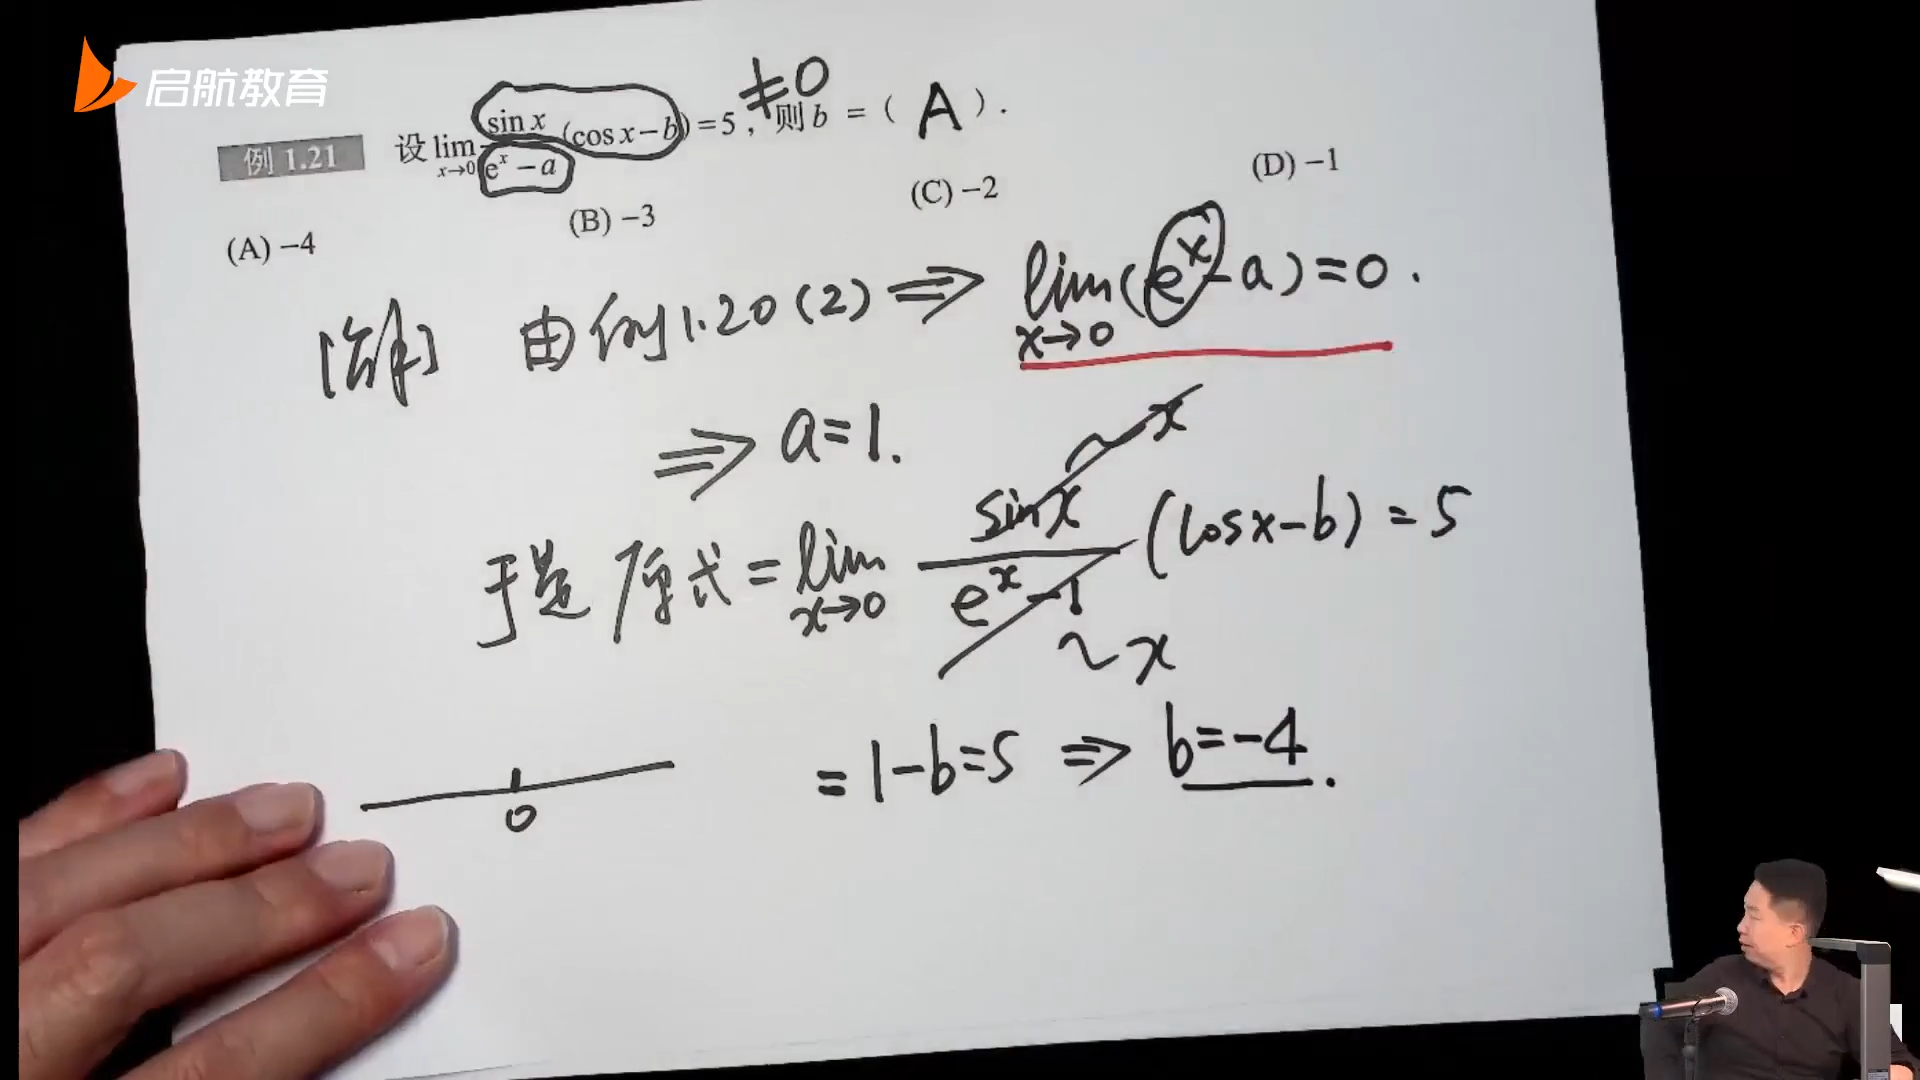 启航教育
≠0
例 1.21 设 lim x→0 sin x / (eˣ − a) (cos x − b) = 5, 则 b = ( A ).
(A) −4 (B) −3 (C) −2 (D) −1
[解] 由例1.20(2) ⇒ lim x→0 (eˣ − a) = 0.
⇒ a = 1.
~ x
于是 原式 = lim x→0 sin x / (eˣ − 1) (cos x − b) = 5
~ x
= 1 − b = 5 ⇒ b = −4.
0